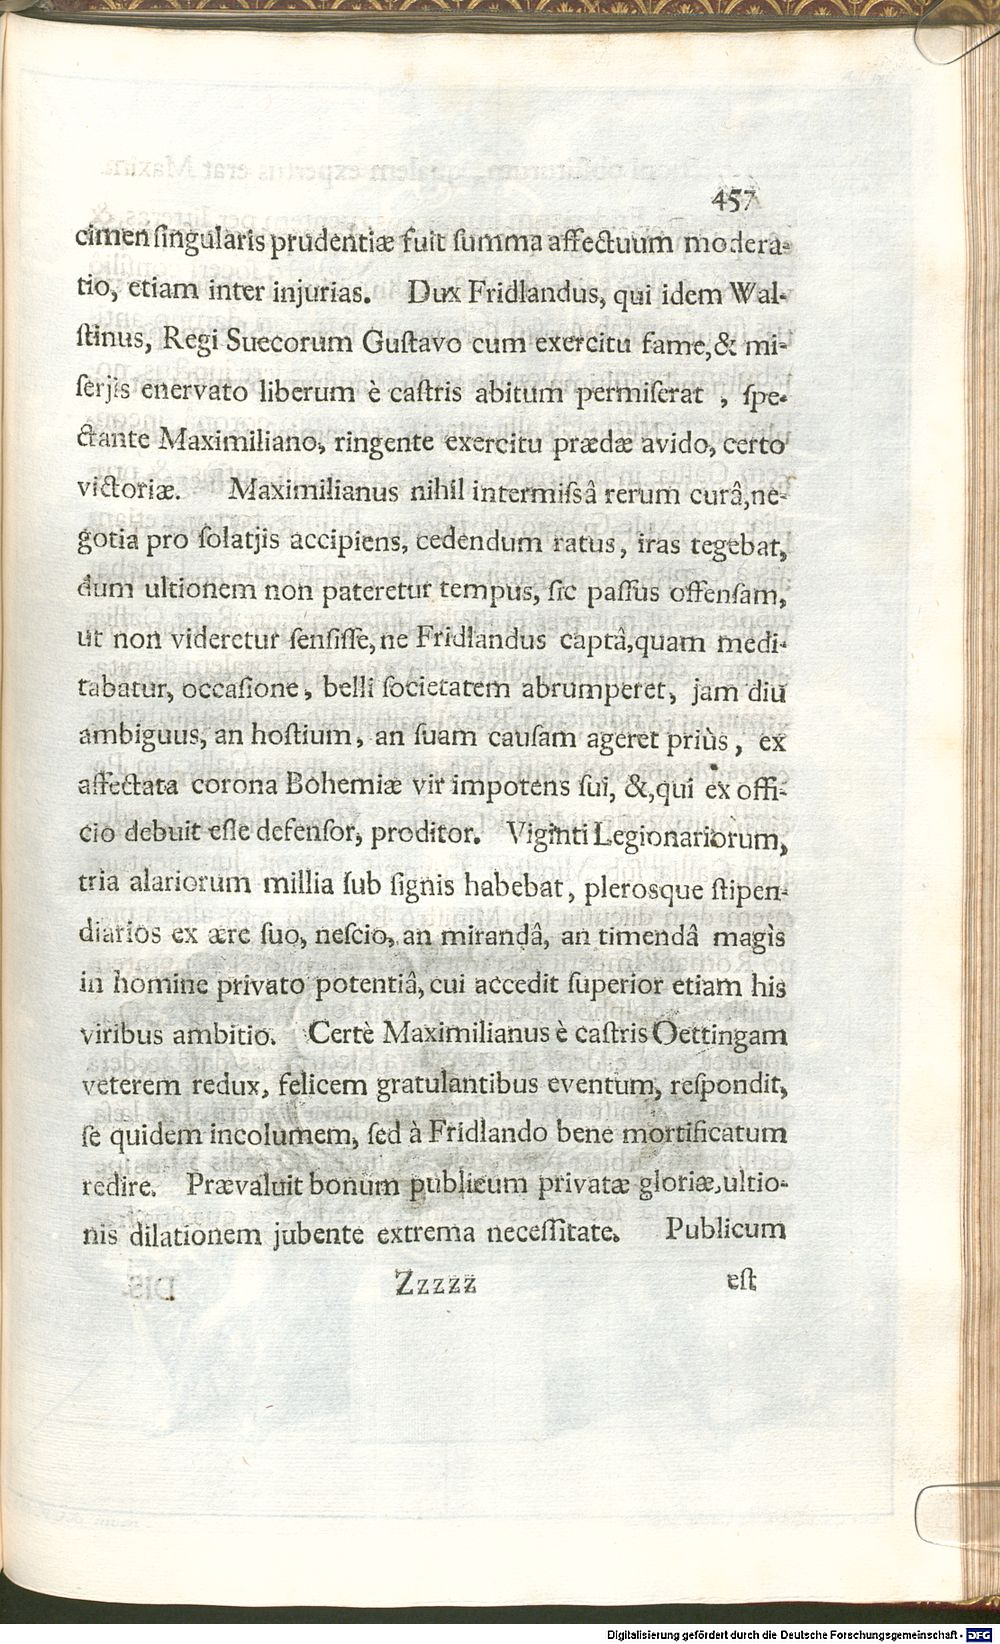 457
cimen singularis prudentiæ fuit summa affectuum modera-
tio, etiam inter injurias. Dux Fridlandus, qui idem Wal-
stinus, Regi Suecorum Gustavo cum exercitu fame, & mi-
serjis enervato liberum è castris abitum permiserat , spe-
ctante Maximiliano, ringente exercitu prædæ avido, certo
victoriæ. Maximilianus nihil intermissâ rerum curâ, ne-
gotia pro solatjis accipiens, cedendum ratus, iras tegebat,
dum ultionem non pateretur tempus, sic passus offensam,
ut non videretur sensisse, ne Fridlandus captâ, quam medi-
tabatur, occasione, belli societatem abrumperet, jam diu
ambiguus, an hostium, an suam causam ageret priùs, ex
affectata corona Bohemiæ vir impotens sui, &, qui ex offi-
cio debuit esse defensor, proditor. Viginti Legionariorum,
tria alariorum millia sub signis habebat, plerosque stipen-
diarios ex ære suo, nescio, an mirandâ, an timendâ magìs
in homine privato potentiâ, cui accedit superior etiam his
viribus ambitio. Certè Maximilianus è castris Oettingam
veterem redux, felicem gratulantibus eventum, respondit,
se quidem incolumem, sed à Fridlando bene mortificatum
redire. Prævaluit bonum publicum privatæ gloriæ, ultio-
nis dilationem jubente extrema necessitate. Publicum
Zzzzz est
Digitalisierung gefördert durch die Deutsche Forschungsgemeinschaft - DFG